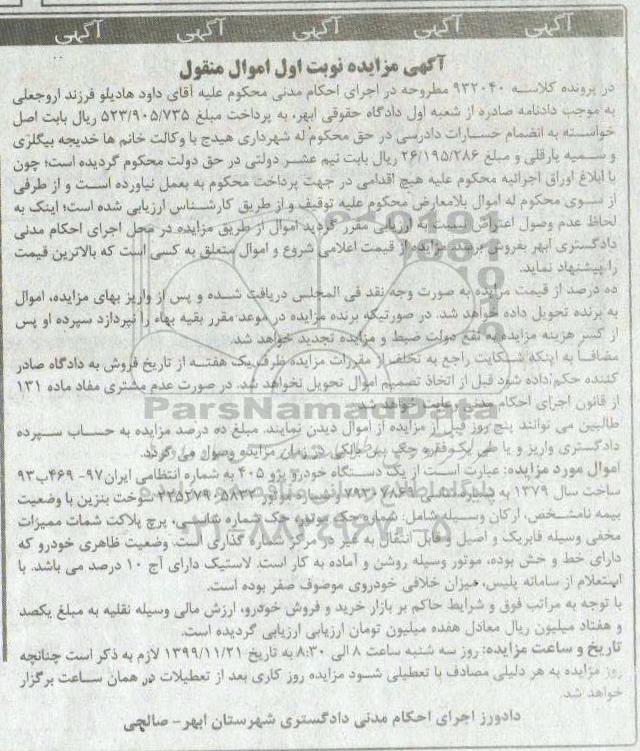 آگهی آگهی آگهی آگهی آگهی
آگهی مزایده نوبت اول اموال منقول
در پرونده کلاسه ۹۳۲۰۴۰ مطروحه در اجرای احکام مدنی محکوم علیه آقای داود هادیلو فرزند اروجعلی
به موجب دادنامه صادره از شعبه اول دادگاه حقوقی ابهر، به پرداخت مبلغ ۵۲۳/۹۰۵/۷۳۵ ریال بابت اصل
خواسته به انضمام خسارات دادرسی در حق محکوم له شهرداری هیدج با وکالت خانم ها خدیجه بیگلزی
و سمیه یارقلی و مبلغ ۲۶/۱۹۵/۲۸۶ ریال بابت نیم عشر دولتی در حق دولت محکوم گردیده است؛ چون
با ابلاغ اوراق اجرائیه محکوم علیه هیچ اقدامی در جهت پرداخت محکوم به بعمل نیاورده است و از طرفی
از سوی محکوم له اموال بلامعارض محکوم علیه توقیف و از طریق کارشناس ارزیابی شده است؛ اینک به
لحاظ عدم وصول اعتراض نسبت به ارزیابی مقرر گردید اموال از طریق مزایده در محل اجرای احکام مدنی
دادگستری ابهر بفروش برسد مزایده از قیمت اعلامی شروع و اموال متعلق به کسی است که بالاترین قیمت
را پیشنهاد نماید.
ده درصد از قیمت مزایده به صورت وجه نقد فی المجلس دریافت شده و پس از واریز بهای مزایده، اموال
به برنده تحویل داده خواهد شد. در صورتیکه برنده مزایده در موعد مقرر بقیه بهاء را نپردازد سپرده او پس
از کسر هزینه مزایده به نفع دولت ضبط و مزایده تجدید خواهد شد.
مضافا به اینکه شکایت راجع به تخلف از مقررات مزایده ظرف یک هفته از تاریخ فروش به دادگاه صادر
کننده حکم داده شود قبل از اتخاذ تصمیم اموال تحویل نخواهد شد. در صورت عدم مشتری مفاد ماده ۱۳۱
از قانون اجرای احکام مدنی رعایت خواهد شد.
طالبین می توانند پنج روز قبل از مزایده از اموال دیدن نمایند. مبلغ ده درصد مزایده به حساب سپرده
دادگستری واریز و یا طی یک فقره چک بین بانکی در زمان مزایده وصول می گردد.
اموال مورد مزایده: عبارت است از یک دستگاه خودرو پژو ۴۰۵ به شماره انتظامی ایران ۹۷- ۴۶۹ب۹۳
ساخت سال ۱۳۷۹ به شماره سوخت بنزین با وضعیت
بیمه نامشخص، ارکان وسیله شامل: شماره حک موتور، حک شماره شاسی، پرچ پلاکت شمات ممیزات
مخفی وسیله فابریک و اصیل و قابل انتقال به غیر در مرکز شماره گذاری است. وضعیت ظاهری خودرو که
دارای خط و خش بوده، موتور وسیله روشن و آماده به کار است. لاستیک دارای آج ۱۰ درصد می باشد. با
استعلام از سامانه پلیس، میزان خلافی خودروی موصوف صفر بوده است.
با توجه به مراتب فوق و شرایط حاکم بر بازار خرید و فروش خودرو، ارزش مالی وسیله نقلیه به مبلغ یکصد
و هفتاد میلیون ریال معادل هفده میلیون تومان ارزیابی ارزیابی گردیده است.
تاریخ و ساعت مزایده: روز سه شنبه ساعت ۸ الی ۸:۳۰ به تاریخ ۱۳۹۹/۱۱/۲۱ لازم به ذکر است چنانچه
روز مزایده به هر دلیلی مصادف با تعطیلی شود مزایده روز کاری بعد از تعطیلات در همان ساعت برگزار
خواهد شد.
دادورز اجرای احکام مدنی دادگستری شهرستان ابهر- صالحی
ParsNamadData